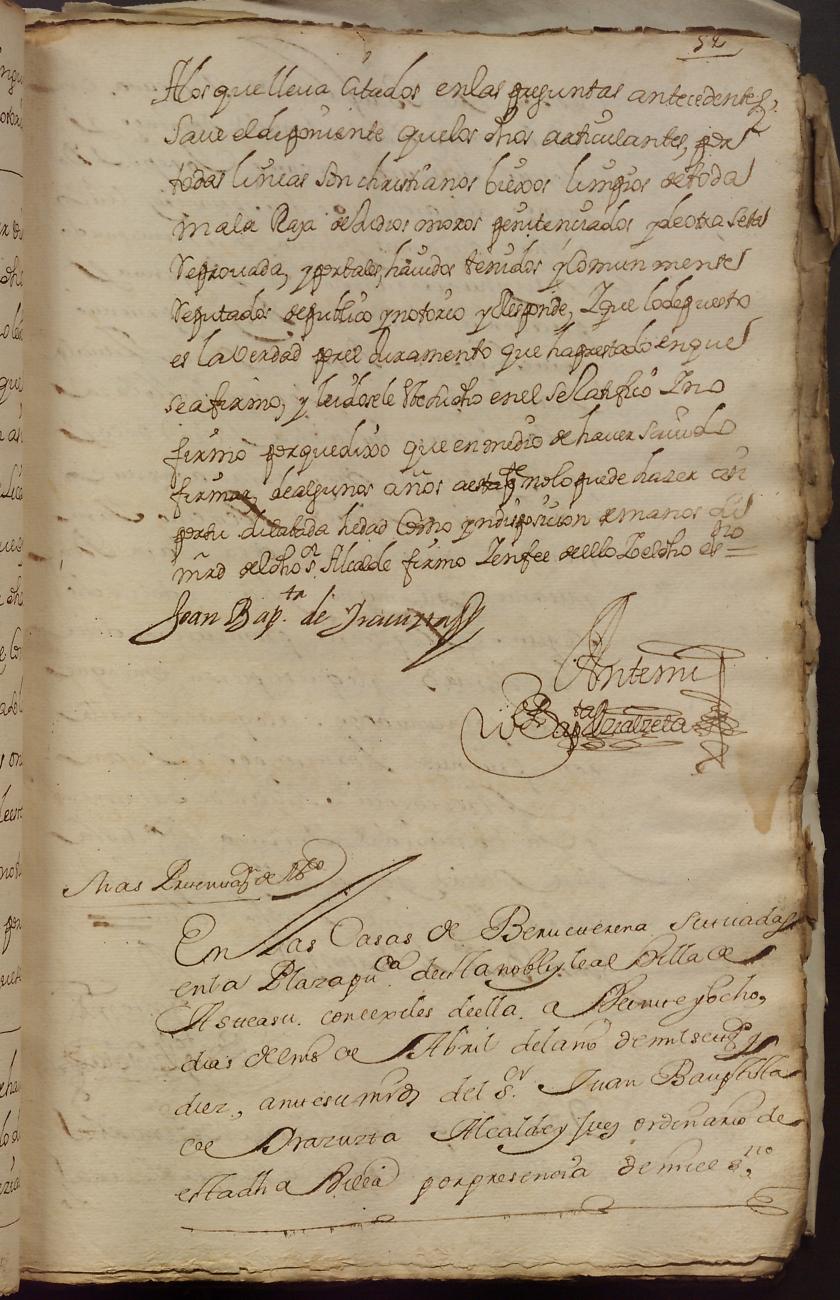 52
Alos quelleva Citados enlas preguntas antecedentes,
Save eldiponiente quelos dhos articulantes, por
todas lineas son christianos biexos limpios detoda
mala Raza deJudios moros penitenciados ydeotra seta
Reprouada, yportales, hauidos tenidos yComun mente
Reputados depublico ynotorio yResponde, Ique lodepuesto
es laverdad porel Juramento que haprestado enque
seafirmo, y leidosele dho enel seRatifico Ino
firmo porquedixo que enmedio de haver savido
firmar, dealgunos años aesta pte nolo puede hazer asi
porsu dilatada hedad Como yndisposicion demanos Su
mrd deldho sr Alcalde firmo Ienfee deello Yo eldho esno
Joan Bapta de Iraurza
Antemi
Bapta
Mas
En Las Casas de Berucuerena Situadas
enla Plaza puca. destanoble yleal Billa de
Asueasu. concexiles deella. a Beinte yocho,
dias delmes de Abril delano demilsetezs y
diez, antesumrd del sor. Juan Bauptista
de Irazuzta Alcalde y Juez ordinario de
estadha Billa porpresencia demi el sno